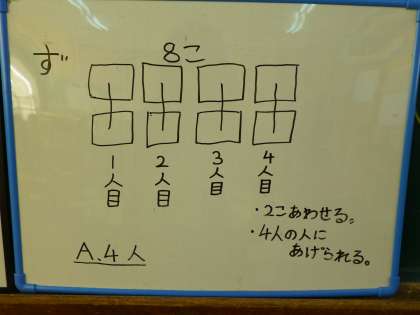 ず
8こ
1人目 2人目 3人目 4人目
・2こあわせる。
・4人の人に
あげられる。
A.4人